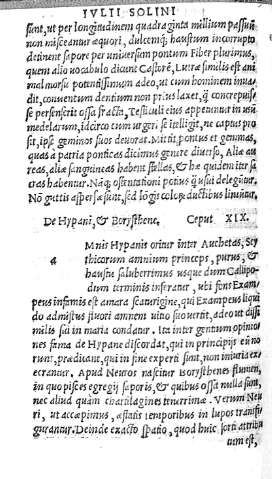 IVLII SOLINI
sunt, ut per longitudinem quadraginta millium passuũ
non misceantur æquori, dulcemq; haustum incorrupto
detinent sapore per uniuersum pontum Fiber plurimus,
quem alio uocabulo dicunt Castorẽ. Lutræ similis est ani
mal morsu potentissimum adeo, ut cum hominem inua
dit, conuentum dentium non prius laxet, q̃ concrepuisse
se persenserit ossa fracta. Testiculi eius appetuntur in usũ
medelarum, idcirco cum urgeri se ĩtelligit, ne captus pro
sit, ipse geminos suos deuorat. Mittit pontus et gemmas,
quas a patria ponticas dicimus genere diuerso, Aliæ au
reas, aliæ sanguineas habent stellas, & hæ quidem iter sa
cras habentur. Nãq; ostentationi potius q̃ usui deleguntur.
Nõ guttis aspersæ sunt, sed lõgis colorũ ductibus liniuntur.
De Hypani, & Borysthene. Ceput XIX.
a
Mnis Hypanis oritur inter Auchetas, Scy
thicorum amnium princeps, purus, &
haustu saluberrimus usque dum Callipo
dum terminis inseratur, ubi fons Exam
peus infamis est amara scaturigine, qui Exampeus liqui
do admistus fluori amnem uitio suo uertit, adeo ut dissi
milis sui in maria condatur. Ita inter gentium opinio
nes fama de Hypane discordat, qui in principijs eũ no
runt, prædicant, qui in fine experti sunt, non iniuria ex
ecrantur. Apud Neuros nascitur Borysthenes flumen,
in quo pisces egregij saporis, & quibus ossa nulla sunt,
nec aliud quam chartilagines tenerrimæ. Verum Neu
ri, ut accæpimus, æstatis temporibus in lupos transfi
gurantur. Deinde exacto spatio, quod huic sorti attribu
tum est,